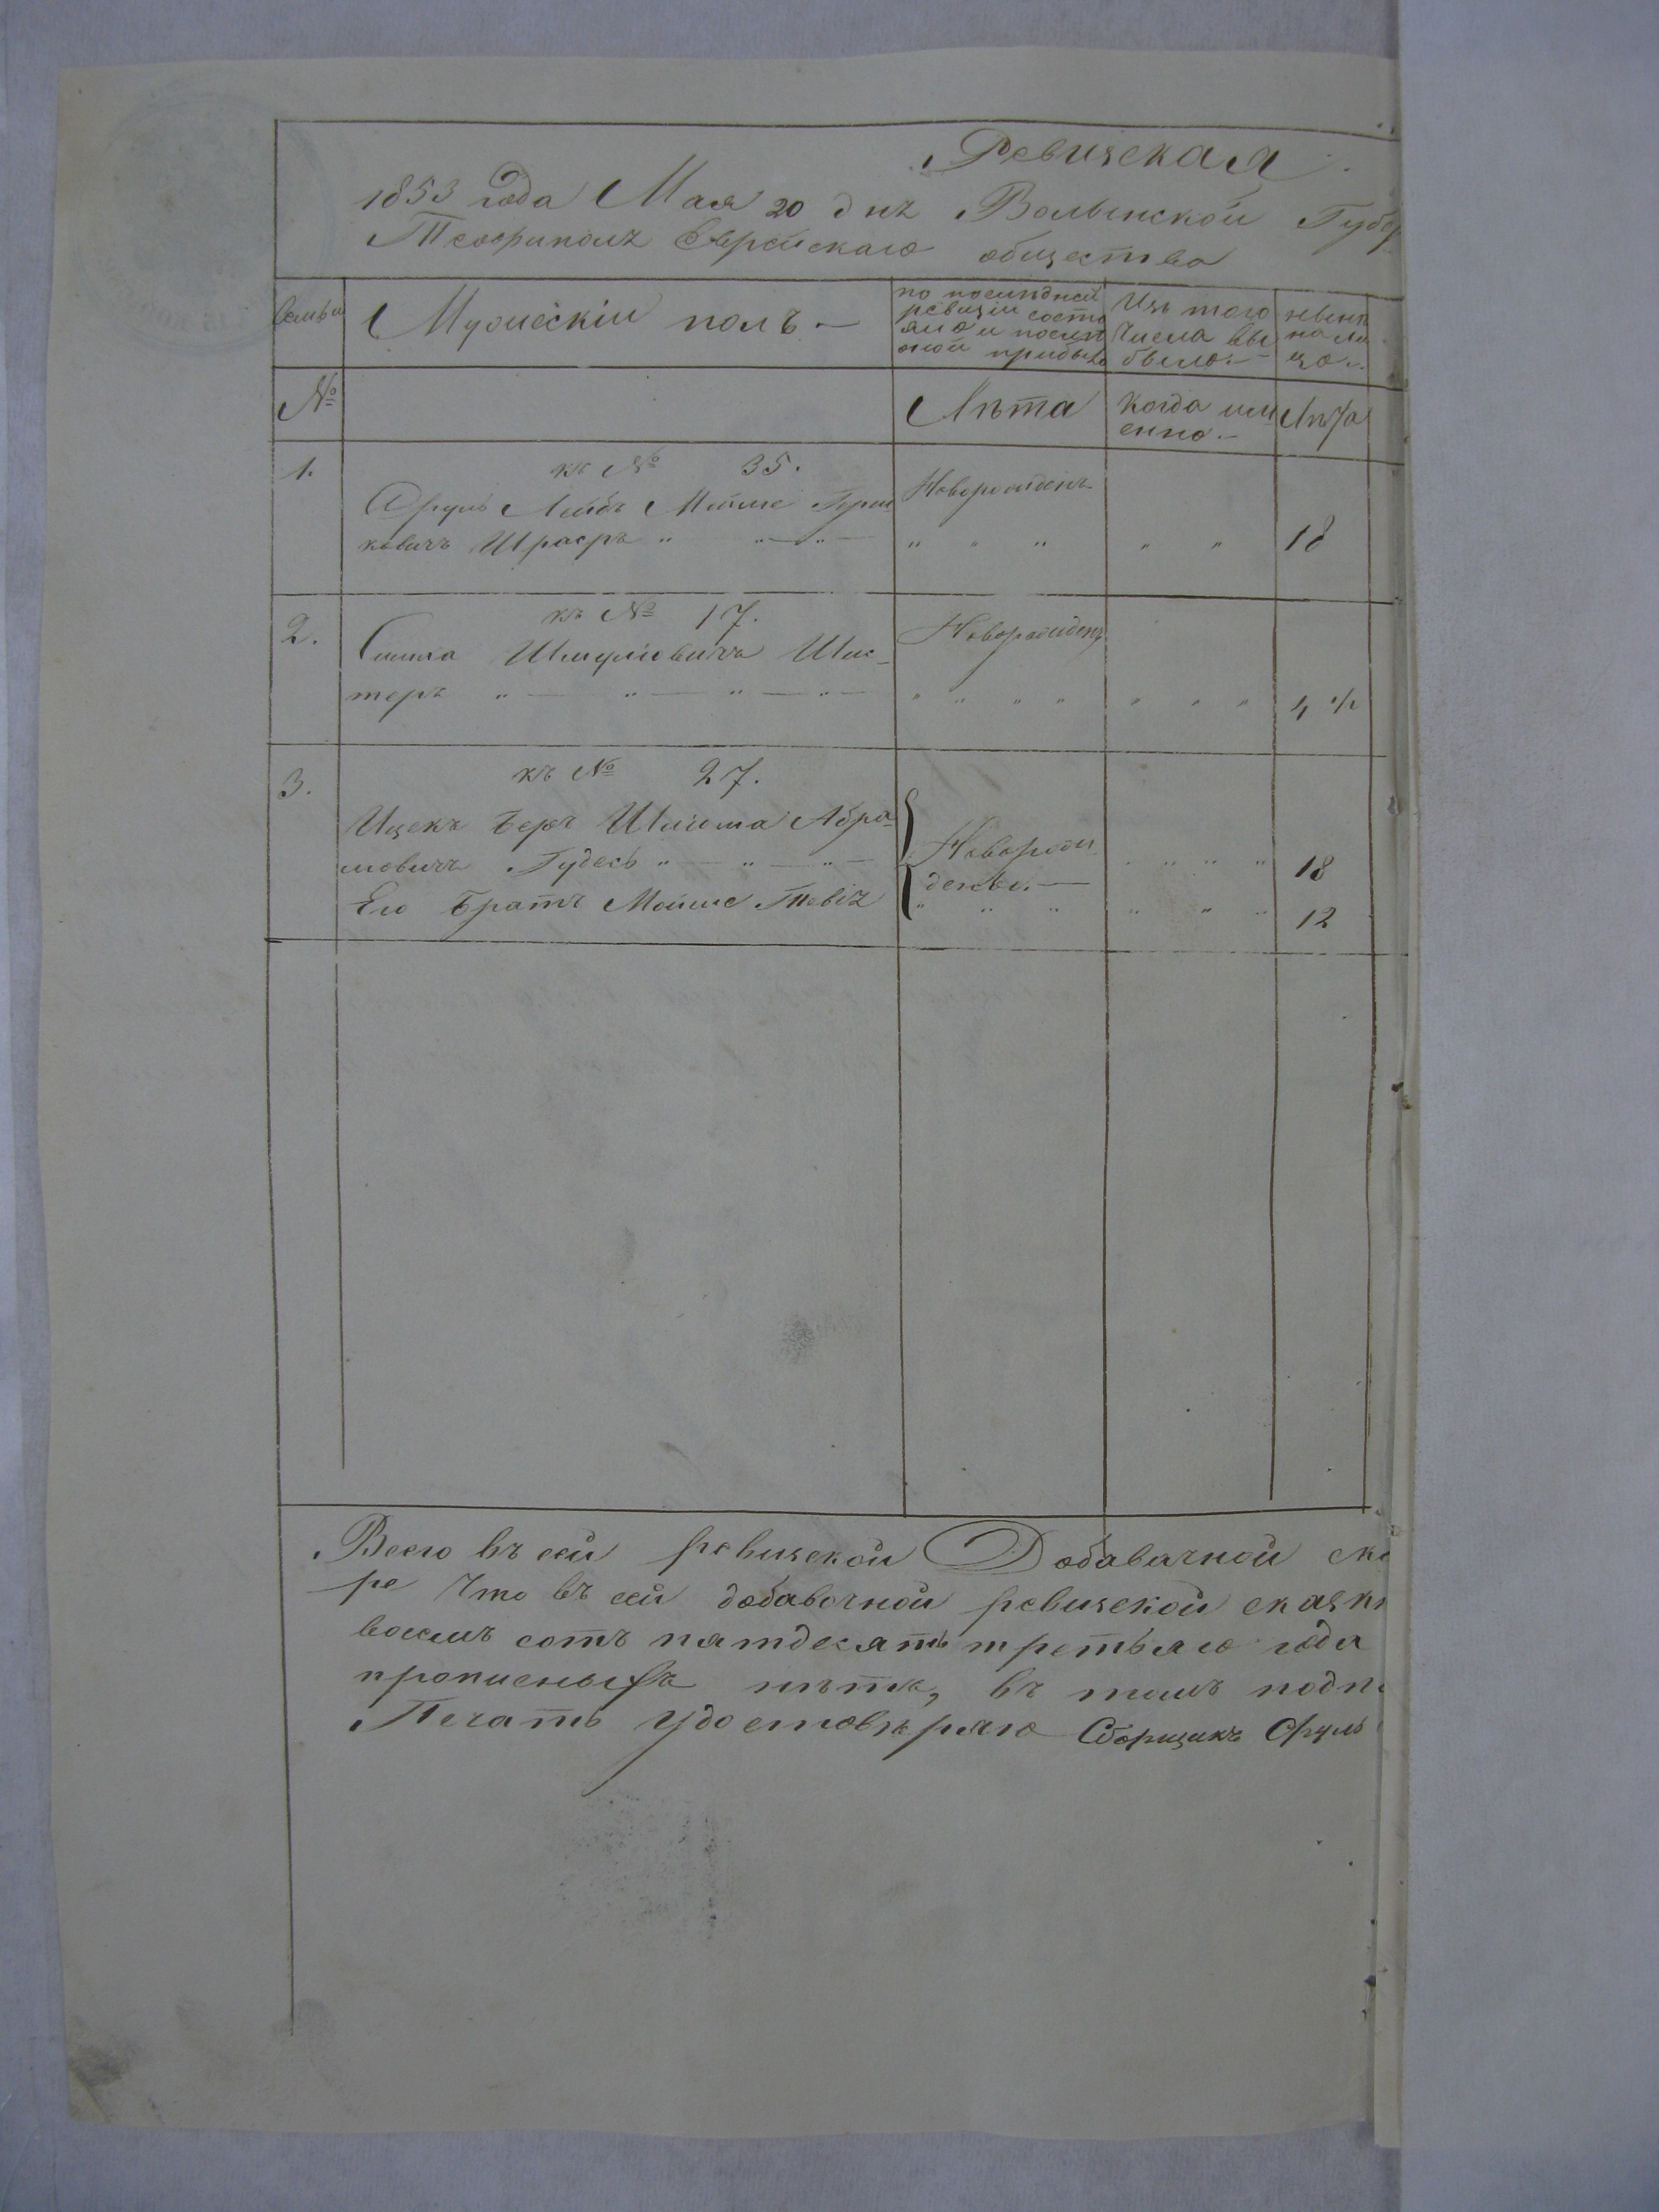 Ревизская
1853 года Мая 20 дня Волынской Губер
Теофиполь Еврейскаго общества
Семьи
Мужескій полъ. —
по последней
ревизіи состо
яло и после
оной прибыло
Изъ того
числа вы
было. —
ныне
на ли
цо. —
№
Лѣта
Когда им
енно. —
Лѣта
1.
къ № 35.
Сруль Лейбъ Мойше Герш
ковичъ Шрасръ " — " — " —
Новорожденъ
" " "
" "
18
2.
къ № 17.
Симха Шмуліовичъ Шис-
теръ " — " — " — " —
Новорожденъ
" " " "
" " "
4 ½
3.
къ № 27.
Ицекъ Беръ Шлема Абра-
мовичъ Гудесъ " — " — " —
Его Братъ Мойше Тевіе
Новорож
дены. —
" " "
" " " "
" " "
18
12
Всего въ сей ревизской Добавачной ска
ре что въ сей добавочной ревизской сказк
восемъ сотъ пятдесятъ третьяго года
прописныхъ нѣтъ, въ томъ подп
Печать удостовѣряю Сборщикъ Сруль